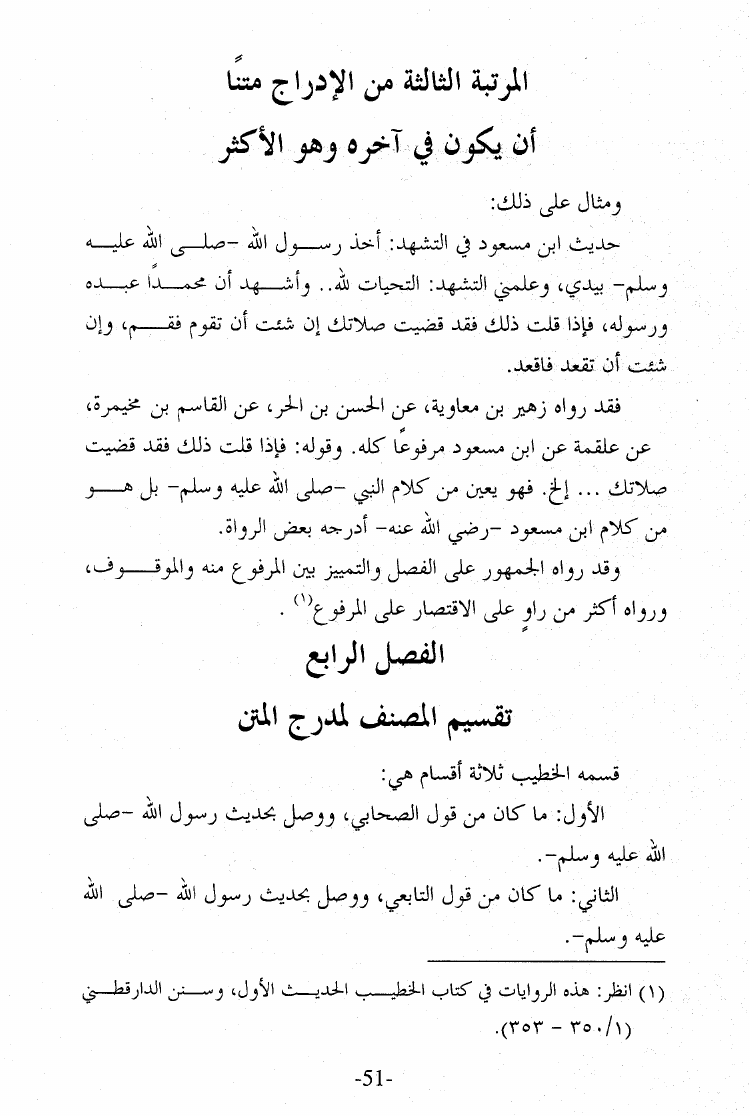 المرتبة الثالثة من الإدراج متنًا
أن يكون في آخره وهو الأكثر
ومثال على ذلك:
حديث ابن مسعود في التشهد: أخذ رسول الله –صلى الله عليه
وسلم– بيدي، وعلمني التشهد: التحيات لله.. وأشهد أن محمدًا عبده
ورسوله، فإذا قلت ذلك فقد قضيت صلاتك إن شئت أن تقوم فقم، وإن
شئت أن تقعد فاقعد.
فقد رواه زهير بن معاوية، عن الحسن بن الحر، عن القاسم بن مخيمرة،
عن علقمة عن ابن مسعود مرفوعًا كله. وقوله: فإذا قلت ذلك فقد قضيت
صلاتك ... إلخ. فهو يعين من كلام النبي –صلى الله عليه وسلم– بل هو
من كلام ابن مسعود –رضي الله عنه– أدرجه بعض الرواة.
وقد رواه الجمهور على الفصل والتمييز بين المرفوع منه والموقوف،
ورواه أكثر من راوٍ على الاقتصار على المرفوع(١) .
الفصل الرابع
تقسيم المصنف لمدرج المتن
قسمه الخطيب ثلاثة أقسام هي:
الأول: ما كان من قول الصحابي، ووصل بحديث رسول الله –صلى
الله عليه وسلم–.
الثاني: ما كان من قول التابعي، ووصل بحديث رسول الله –صلى الله
عليه وسلم–.
(١) انظر: هذه الروايات في كتاب الخطيب الحديث الأول، وسنن الدارقطني
(٣٥٠/١ – ٣٥٣).
-51-